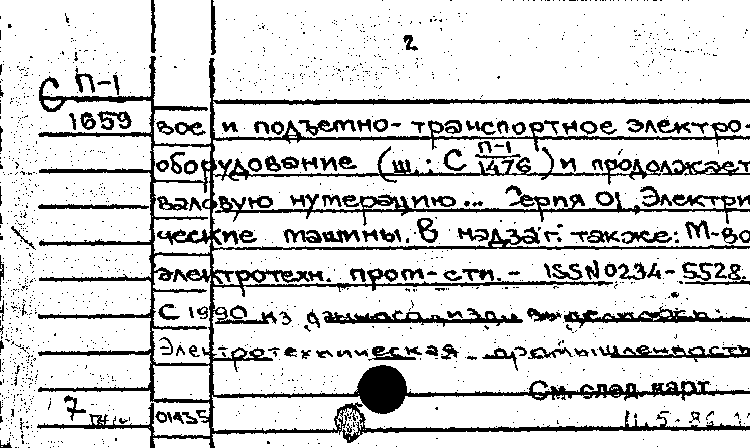 2
С П-1
1659
вое и подъемно-транспортное электро-
оборудование (ш.: С П-1
1476) и продолжает
валовую нумерацию... Серия 01 „Электри
ческие машины. В надзаг.: также: М-во
электротехн. пром-сти. - ISSN 0234-5528.
С 1990 из данного изд. выделилось:
Электротехническая промышленность
См. след. карт.
7
01435
11.5.86